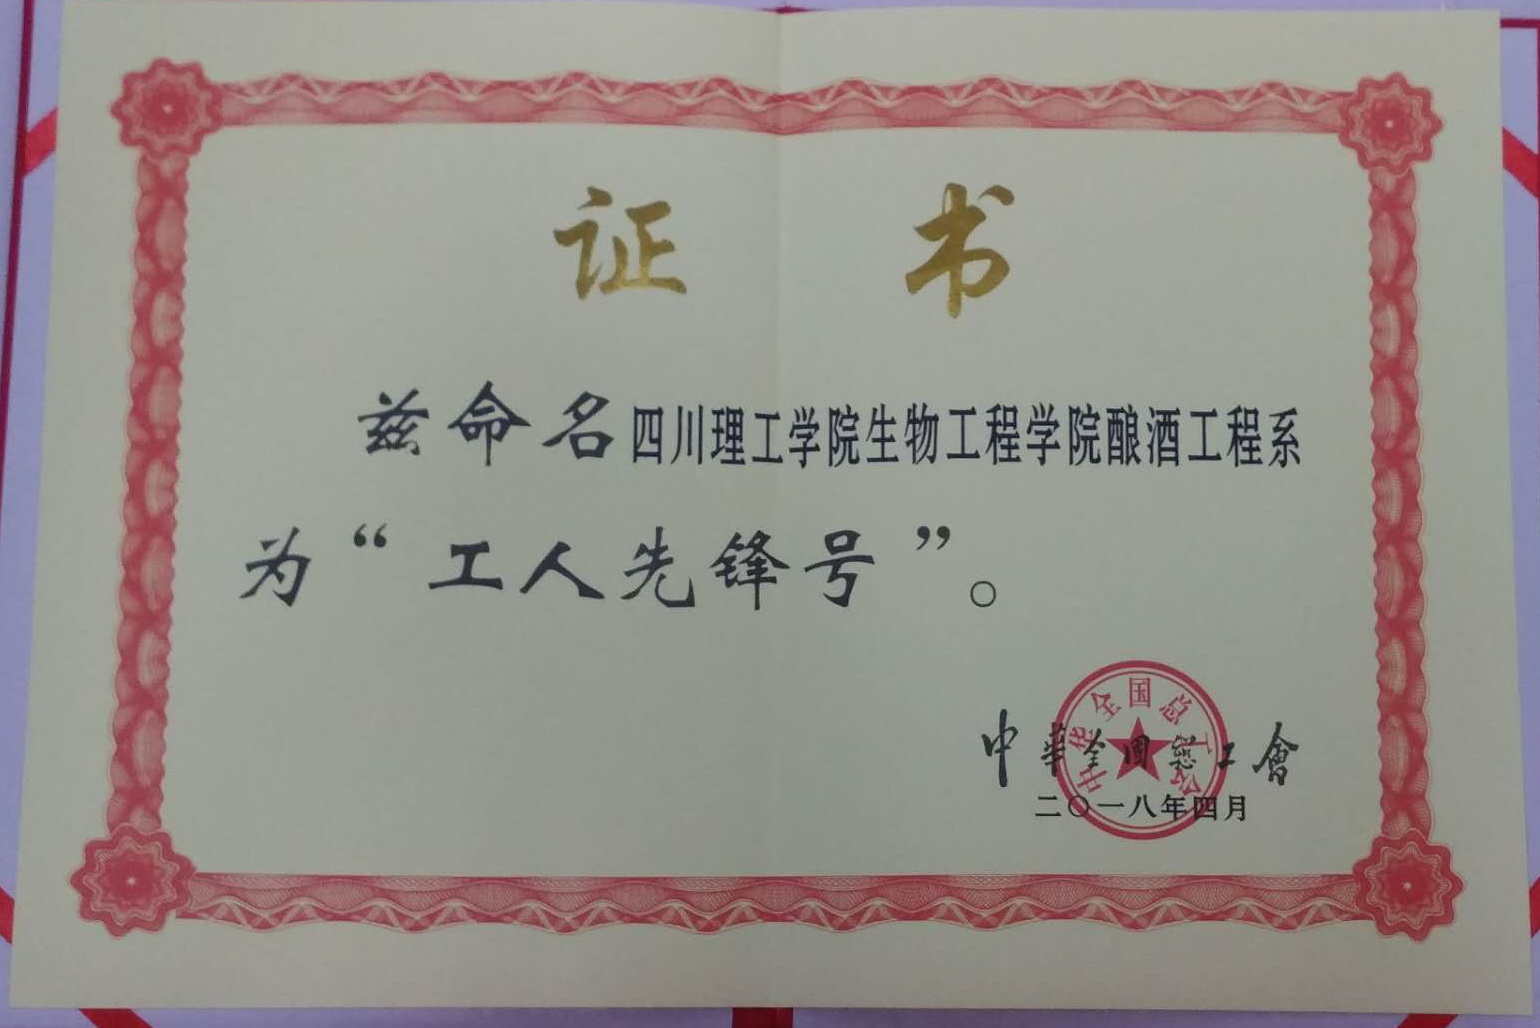 证书
兹命名四川理工学院生物工程学院酿酒工程系
为“工人先锋号”。
中华全国总工会
中華全國總工會
二〇一八年四月